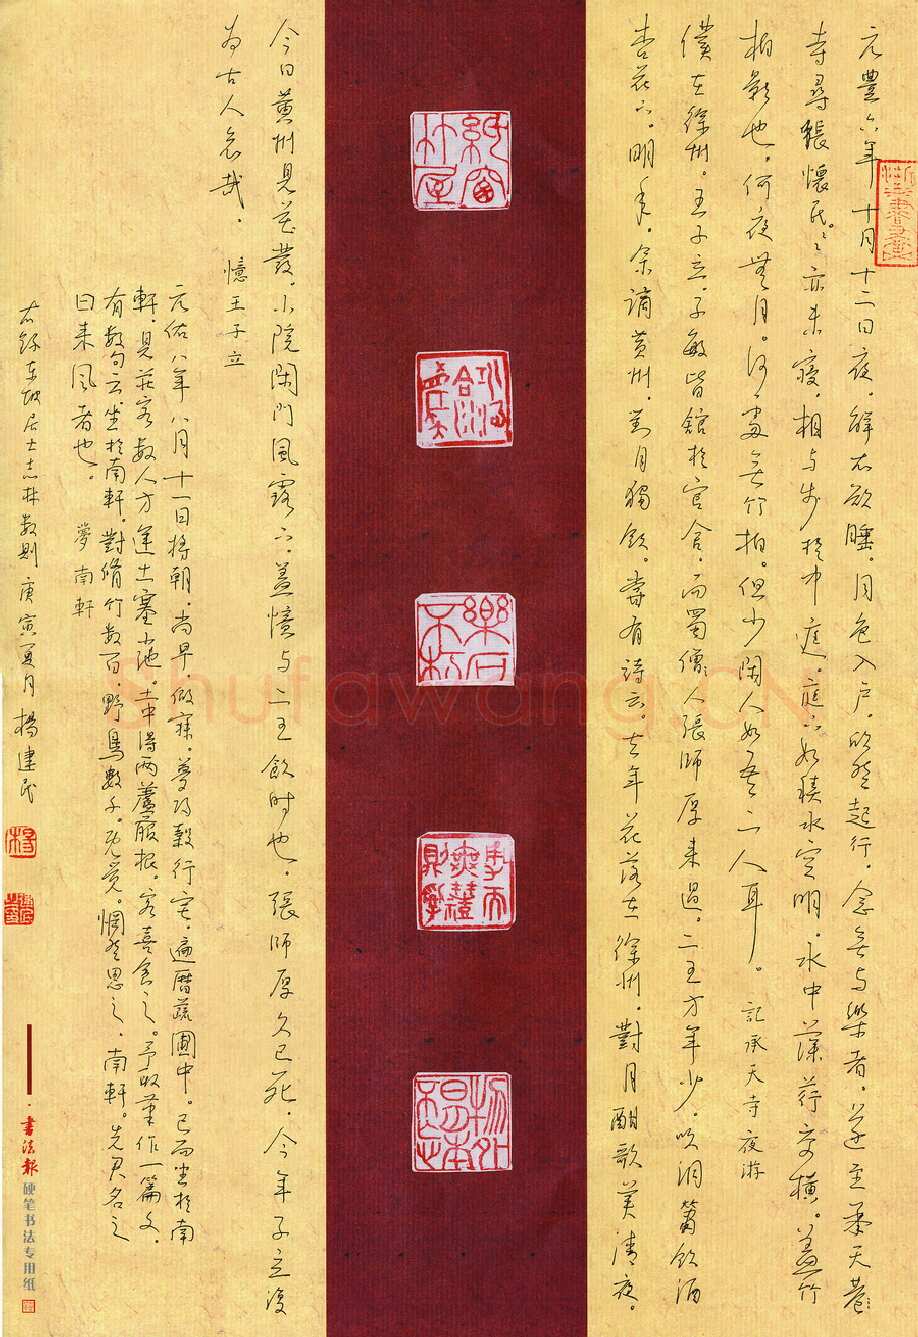 元豐六年十月十二日夜。解衣欲睡。月色入户。欣然起行。念無与樂者。遂至承天
寺尋張懷民。々亦未寢。相与步於中庭。庭下如積水空明。水中藻荇交横。蓋竹
柏影也。何夜無月。何處無竹柏。但少閑人如吾二人耳。 記承天寺夜游
僕在徐州。王子立。子敏皆館於官舍。而蜀僧人張師厚来過。二王方年少。吹洞簫飲酒
杏花下。明年。余谪黄州。對月獨飲。嘗有詩云。去年花落在徐州。對月酣歌美清夜。
今日黄州見花發。小院閑門風露下。蓋憶与二王飲時也。張師厚久已死。今年子立復
為古人哀哉。 憶王子立
元佑八年八月十一日將朝。尚早。假寐。夢歸縠行宅。遍曆蔬圃中。已而坐於南
軒。見莊客數人方運土塞小池。土中得两蘆菔根。客喜食之。予取筆作一篇文。
有數句云。坐於南軒。對脩竹數百。野鳥數千。既覺。惘然思之。南軒。先君名之
曰来風者也。 夢南軒
右録东坡居士志林數則 庚寅夏月 楊建民
紙窗竹屋
書法報 硬笔书法专用纸
shufawang.CN